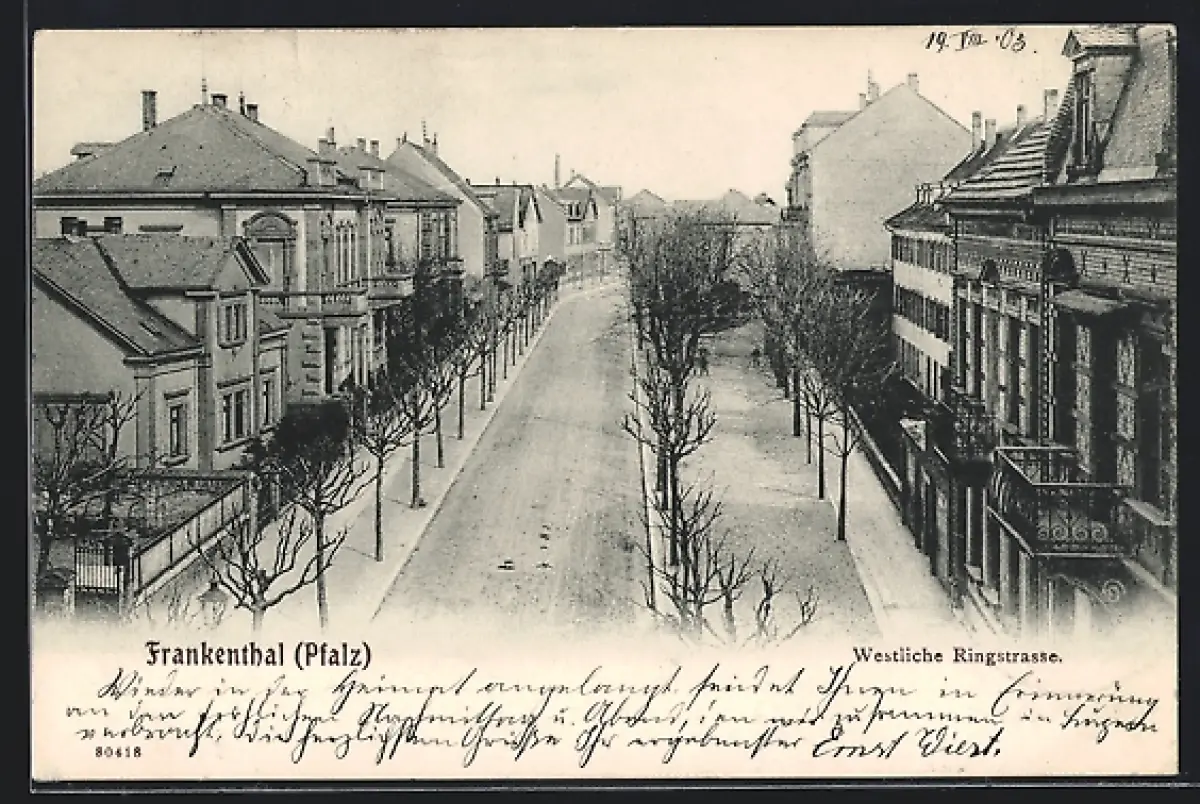 19. VIII. 03.
Frankenthal (Pfalz)
Westliche Ringstrasse.
Wieder in der Heimat angelangt, sendet Ihnen in Erinnerung
an den fröhlichen Nachmittag u. Abend, den wir zusammen in Luzern
verbracht, die herzlichsten Grüße Ihr ergebenster Ernst
80418